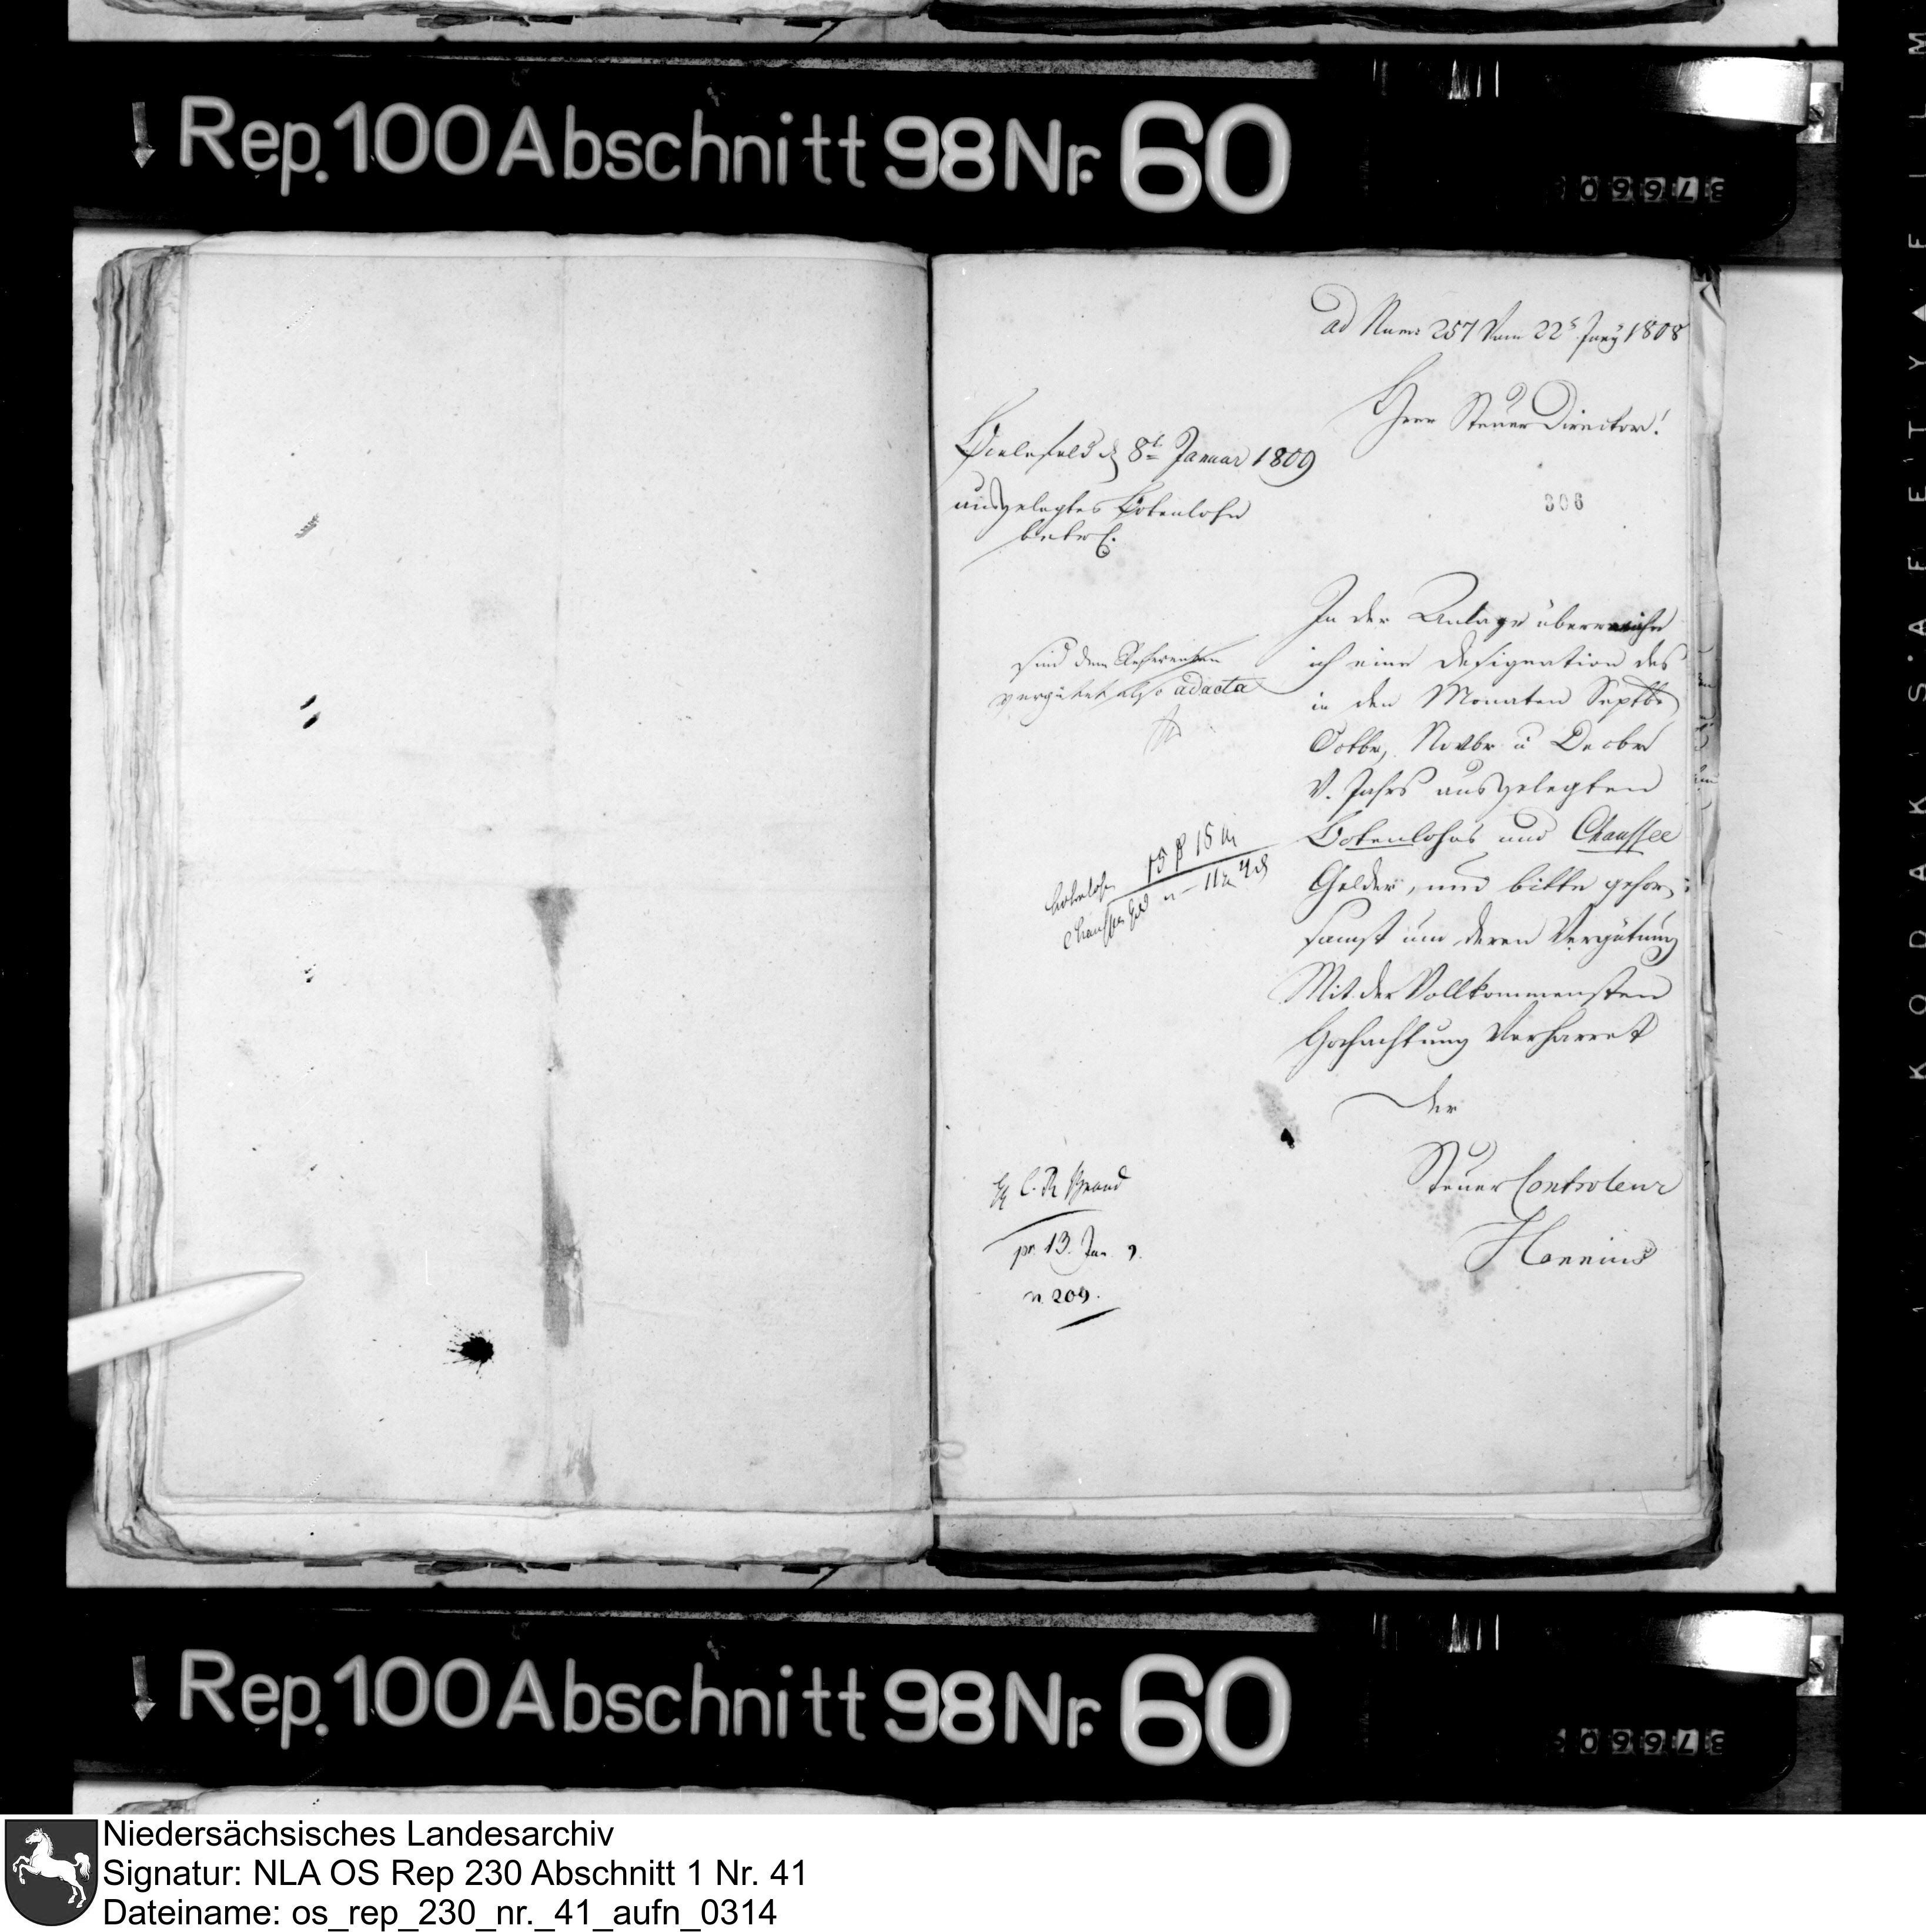 Rep. 100 Abschnitt 98 Nr. 60
37660
ad Num: 257 vom 22t Juny 1808
Herr Steuer Director!
Bielefeld d 8t Januar 1809
ausgelegtes Botenlohn
betr.
306
In der Anlage überreiche
ich eine Designation des
in den Monaten Septbr
Octbr, Novbr u Decbr
v. Jahrs ausgelegten
Botenlohns und Chaussee
Gelder, und bitte gehor-
samst um deren Vergütung
Mit der Vollkommensten
Hochachtung Verharret
der
Steuer Controleur
Hennius
sind dem Referenten
vergütet also ad acta
botenlohn 15 15
Chaussee Geld 11
pr. 13. Jan 9.
n. 209.
Rep. 100 Abschnitt 98 Nr. 60
37660
KODAK SAFETY FILM
Niedersächsisches Landesarchiv
Signatur: NLA OS Rep 230 Abschnitt 1 Nr. 41
Dateiname: os_rep_230_nr._41_aufn_0314